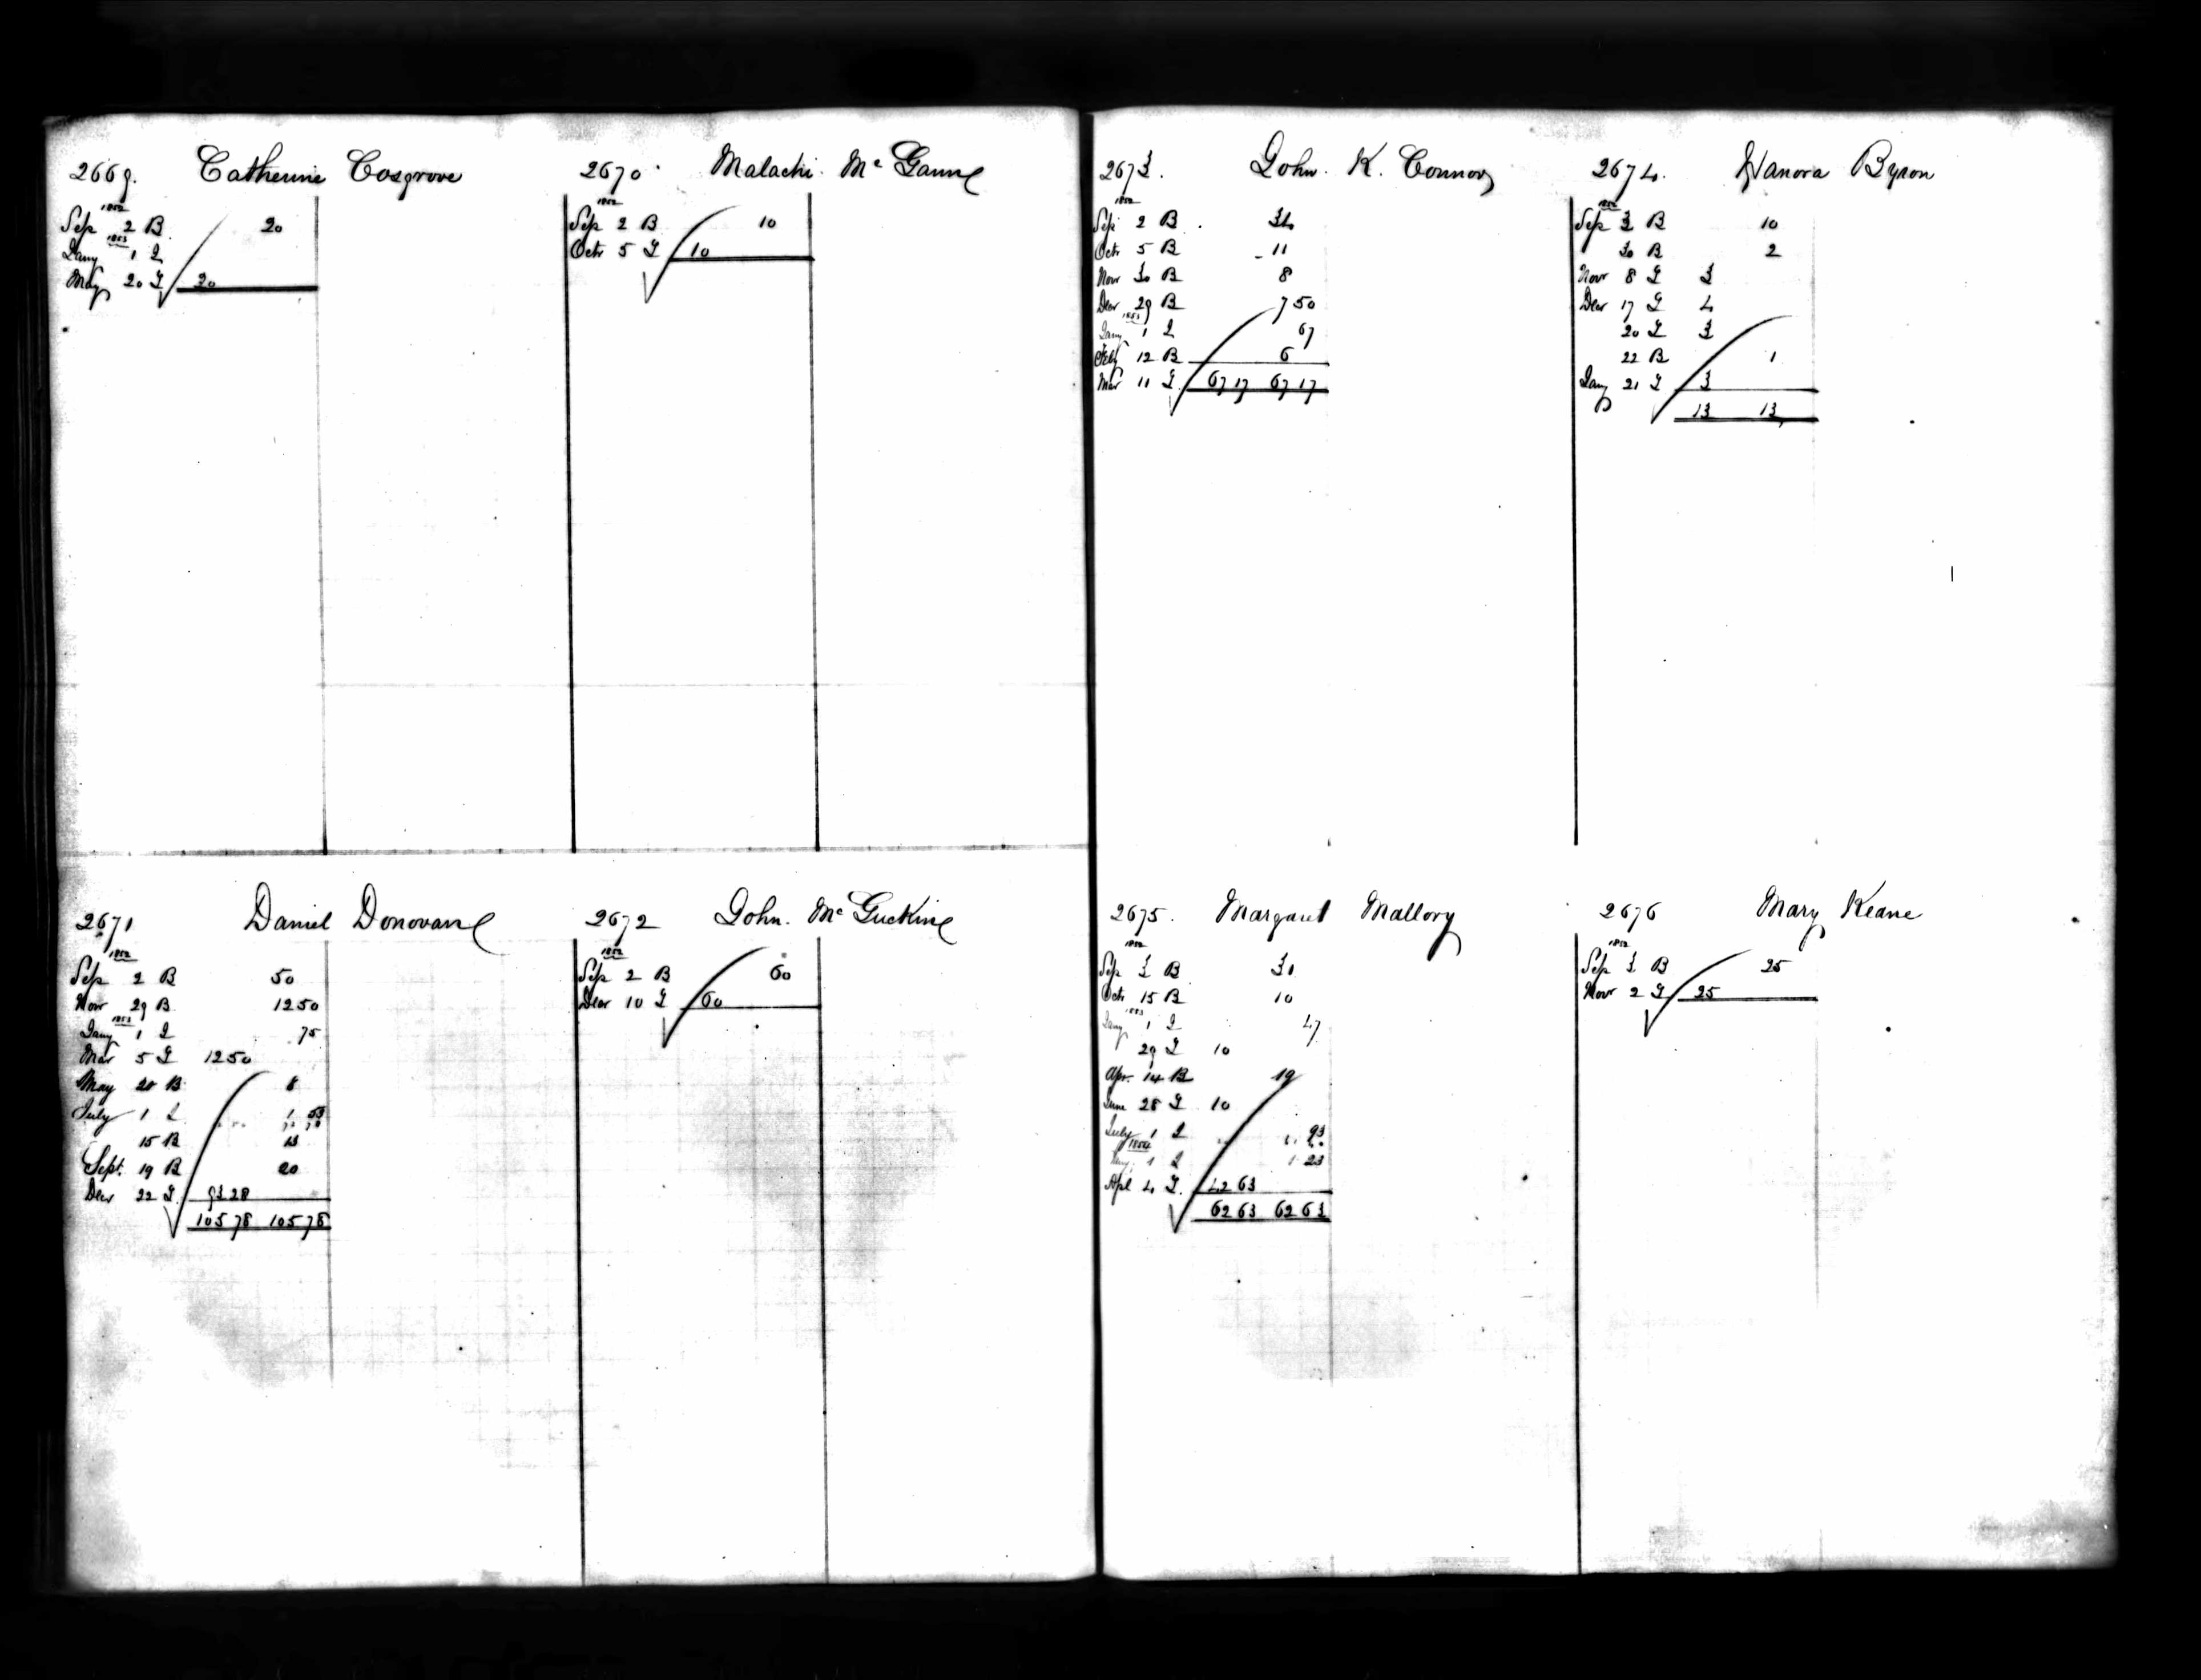 2669. Catherine Cosgrove
1852
Sep 2 B 20
1853
Jany 1 I
May 20 T 20
2670 Malachi McGanne
1852
Sep 2 B 10
Octr 5 T 10
2671 Daniel Donovan
1852
Sep 2 B 50
Novr 29 B 12 50
1853
Jany 1 I 75
Mar 5 T 12 50
May 20 B 8
July 1 I 1 53
15 B 13
Sept. 19 B 20
Decr 22 T 93 28
105 78 105 78
2672 John McGuckin
1852
Sep 2 B 60
Decr 10 T 60
2673. John K. Connor
1852
Sep 2 B 34
Octr 5 B 11
Novr 30 B 8
Decr 29 B 7 50
1853
Jany 1 I 67
Feby 12 B 6
Mar 11 T 67 17 67 17
2674. Hanora Byron
1852
Sep 3 B 10
30 B 2
Novr 8 T 3
Decr 17 T 4
20 T 3
22 B 1
Jany 21 T 3
13 13
2675. Margaret Mallory
1852
Sep 3 B 31
Octr 15 B 10
1853
Jany 1 I 47
29 T 10
Apr. 14 B 19
June 28 T 10
July 1 I 93
1854
Jany 1 I 1 23
Apl 4 T. 42 63
62 63 62 63
2676 Mary Keane
1852
Sep 3 B 25
Novr 2 T 25